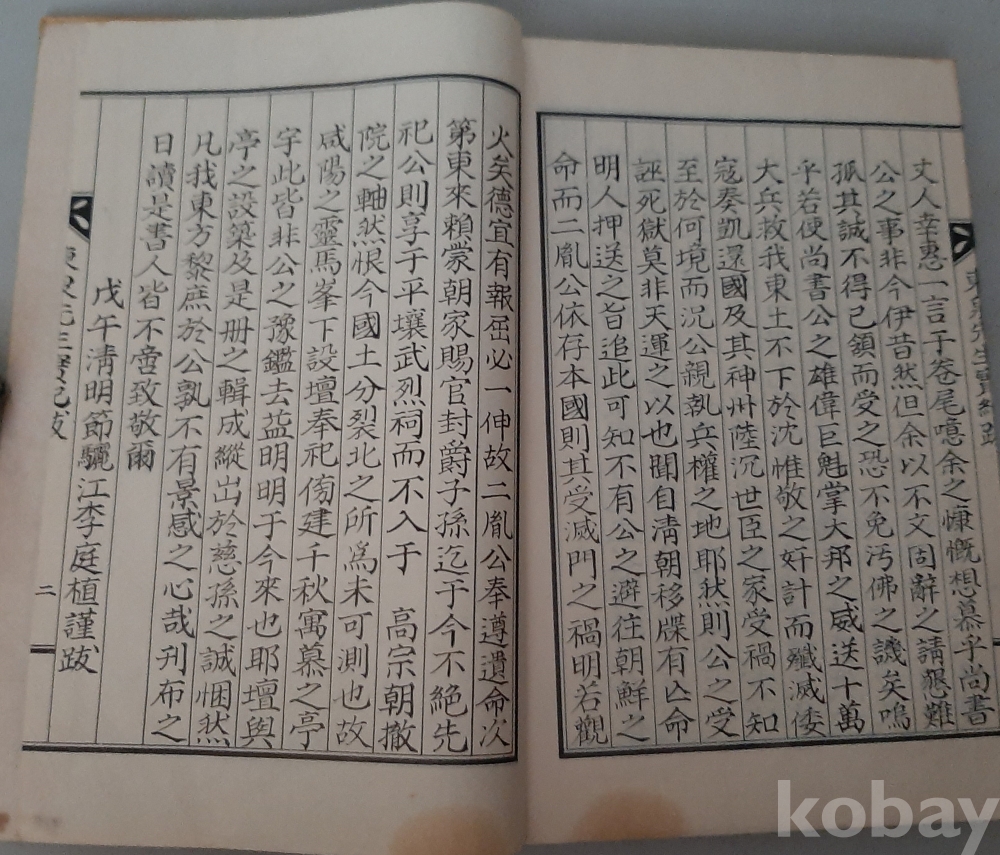 丈人幸惠一言于卷尾噫余之慷慨想慕乎尚書
公之事非今伊昔然但余以不文固辭之請懇難
孤其誠不得已領而受之恐不免汚佛之譏矣嗚
乎若使尚書公之雄偉巨魁掌大邦之威送十萬
大兵救我東土不下於沈惟敬之奸計而殲滅倭
寇奏凱還國及其神州陸沉世臣之家受禍不知
至於何境而況公親執兵權之地耶然則公之受
誣死獄莫非天運之以也聞自淸朝移牒有亾命
明人押送之旨追此可知不有公之避往朝鮮之
命而二胤公依存本國則其受滅門之禍明若觀
火矣德宜有報屈必一伸故二胤公奉遵遺命次
第東來賴蒙朝家賜官封爵子孫迄于今不絕先
祀公則享于平壤武烈祠而不入于 高宗朝撤
院之軸然恨今國土分裂北之所爲未可測也故
咸陽之靈馬峯下設壇奉祀傍建千秋寓慕之亭
宇此皆非公之豫鑑去益明明于今來也耶壇與
亭之設築及是册之輯成縱出於慈孫之誠悃然
凡我東方黎庶於公孰不有景感之心哉刋布之
日讀是書人皆不啻致敬爾
戊午淸明節驪江李庭植謹跋
二
kobay